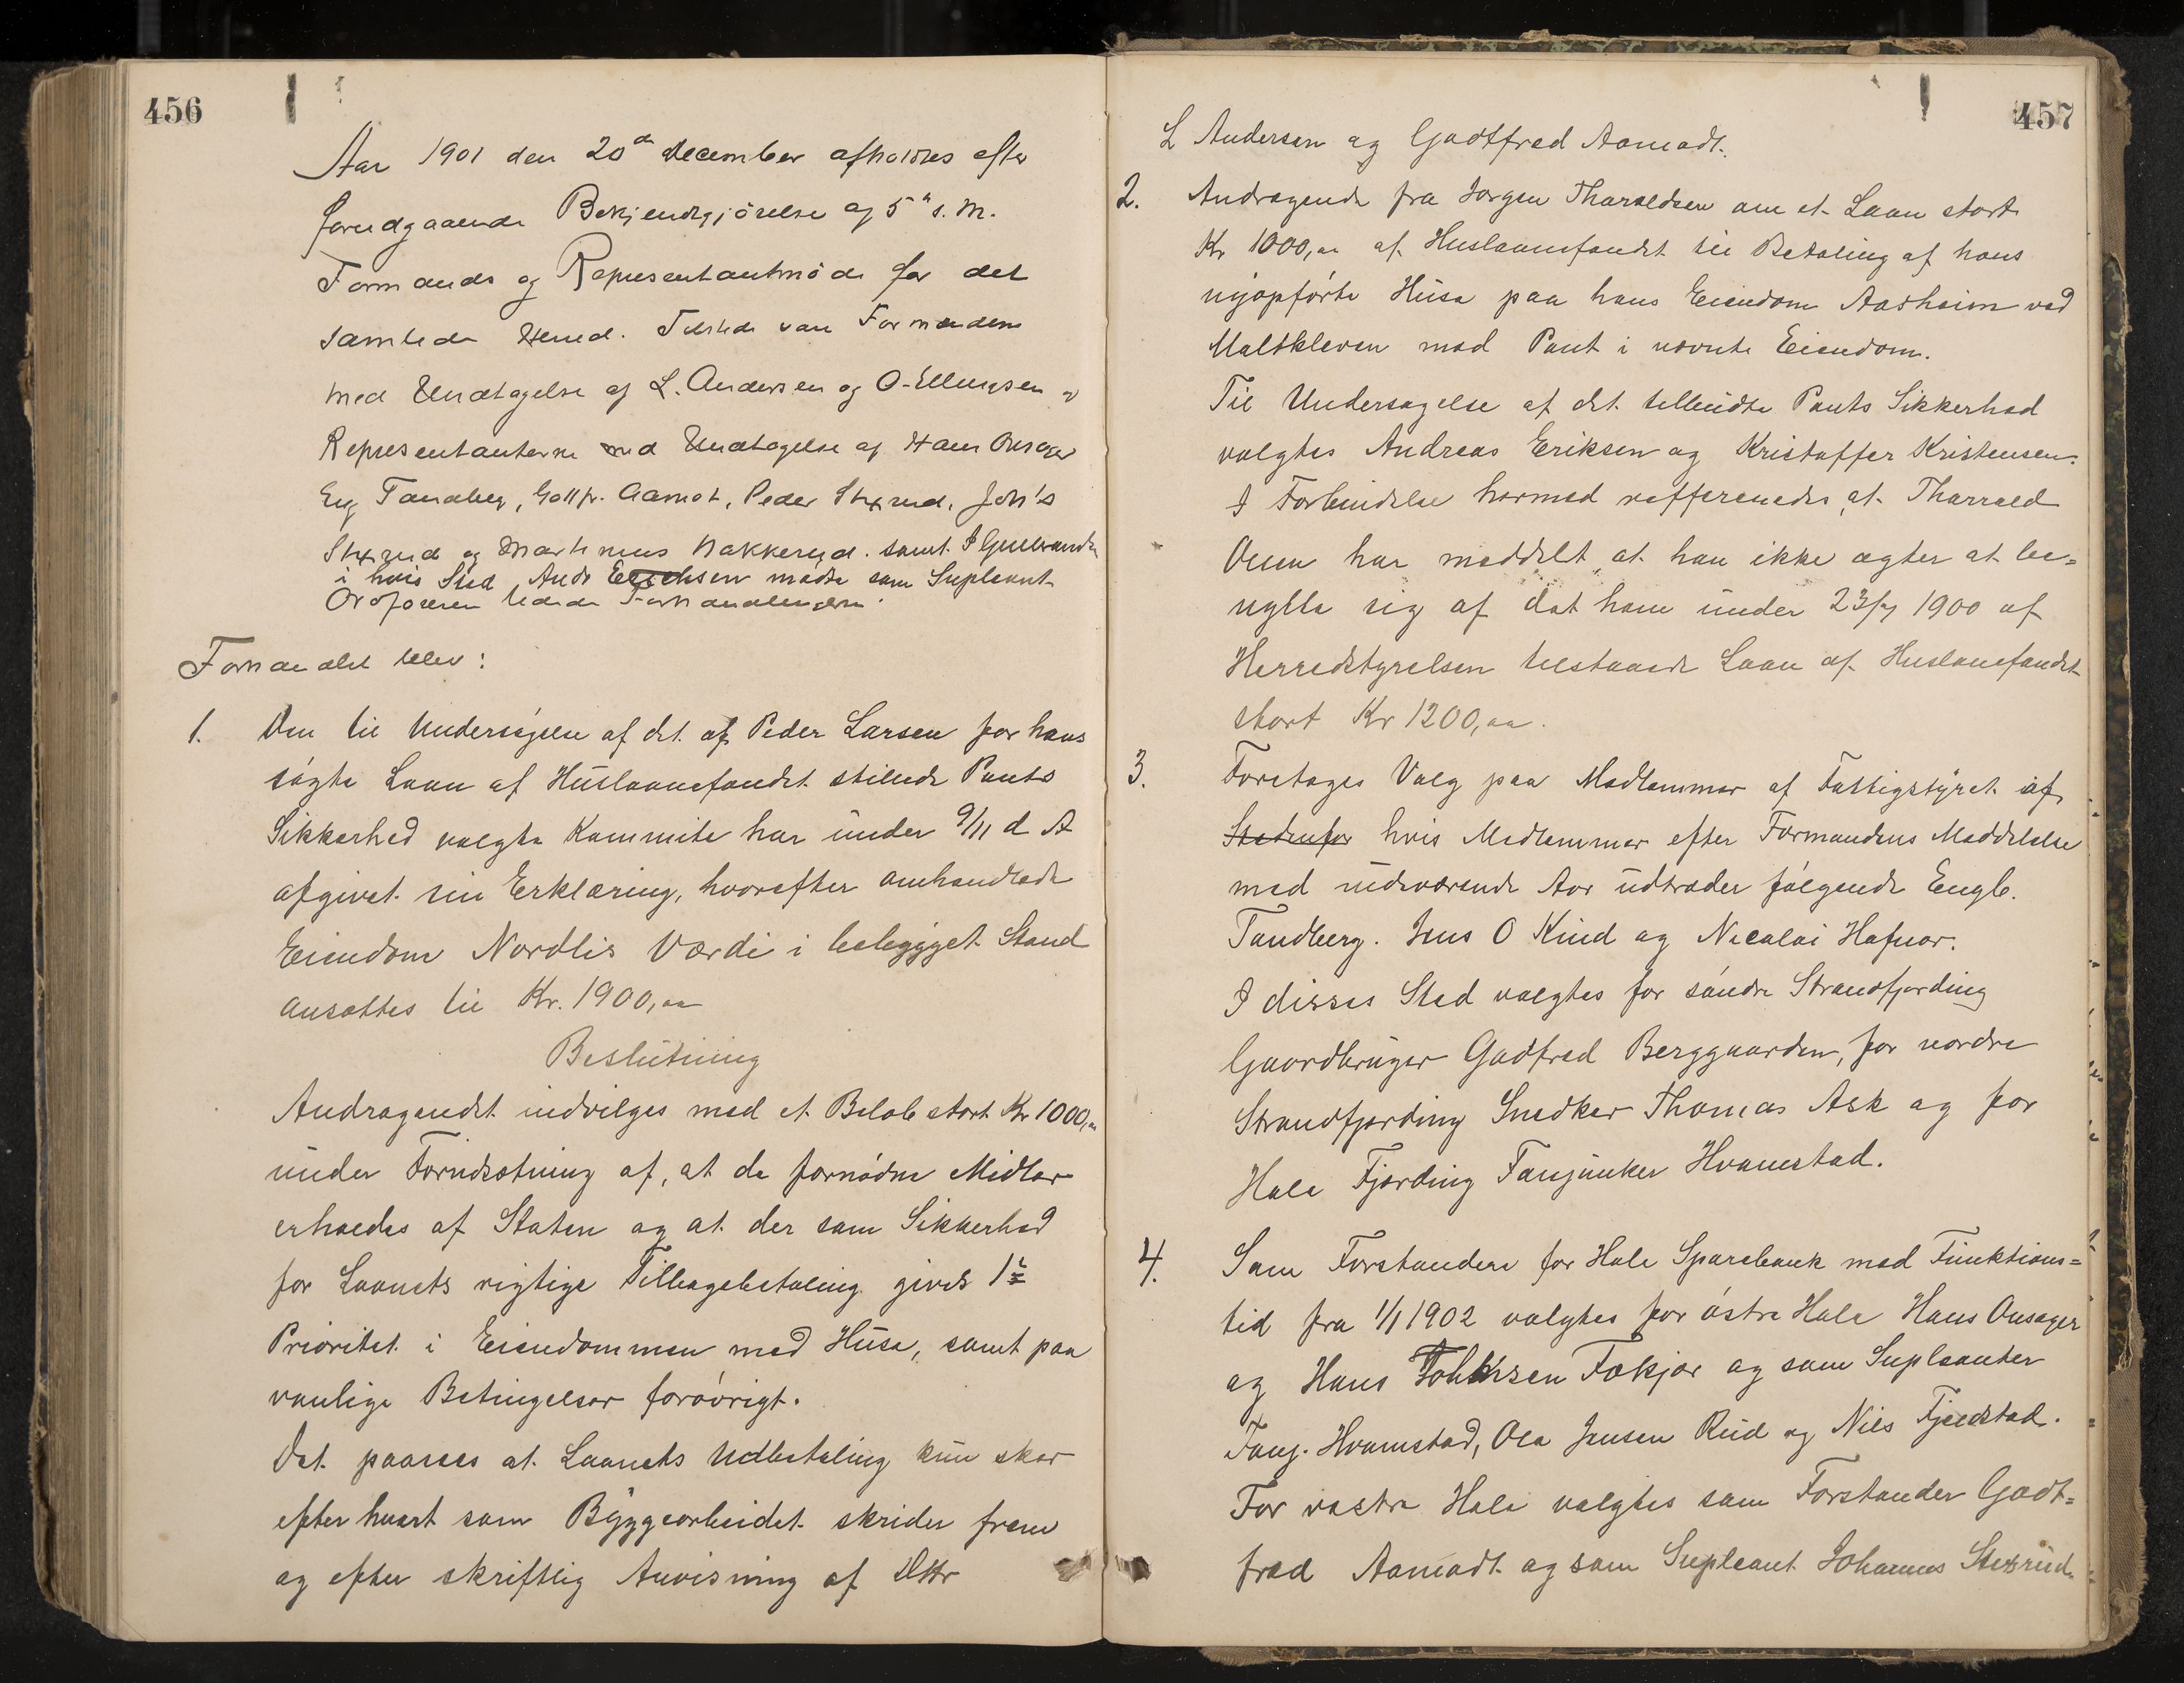 456
Aar 1901 den 20de December afholdtes efter
forudgaaende Bekjendtgjörelse af 5te s. M.
Formands og Representantmöde for det
samlede Herred. Tilstede vare Formændene
med Undtagelse af L. Andersen og O. Ellingsen og
Representanterne med Undtagelse af Hans Onsager
Eng Tandberg, Gottfr. Aamot, Peder Stixrud, Joh's
Stixrud og Martinius Nakkerud. samt I Gulbrandsen
i hvis Sted Ands Erichsen mødte som Supleant
Ordføreren ledede Forhandlingerne.
Forhandlet blev:
1. Den til Undersögelse af det af Peder Larsen for hans
sögte Laan af Huslaanefondet stillede Pants
Sikkerhed valgte Kommite har under 9/11 d A
afgivet sin Erklæring, hvorefter omhandlede
Eiendom Nordlis Værdi i bebygget Stand
ansættes til Kr. 1900,00
Beslutning
Andragendet indvilges med et Beløb stort Kr 1000,00
under Forudsætning af, at de fornödne Midler
erholdes af Staten og at der som Sikkerhed
for Laanets rigtige Tilbagebetaling gives 1ste
Prioritet i Eiendommen med Huse, samt paa
vanlige Betingelser forövrigt.
Det paasees at Laanets Udbetaling kun sker
efter hvert som Byggearbeidet skrider frem
og efter skriftlig Anvisning af DHrr
457
L Andersen og Godtfred Aamodt.
2. Andragende fra Jørgen Tharaldsen om et Laan stort
Kr 1000,00 af Huslaanefondet til Betaling af hans
nyopförte Huse paa hans Eiendom Aasheim ved
Maltkleven mod Pant i nævnte Eiendom.
Til Undersøgelse af det tilbudte Pants Sikkerhed
valgtes Andreas Eriksen og Kristoffer Kristensen.
I Forbindelse hermed refereredes, at Tharald
Oum har meddelt, at han ikke agter at be-
nytte sig af det ham under 23/7 1900 af
Herredstyrelsen tilstaaede Laan af Huslanefondet
stort Kr 1200,00.
3. Foretoges Valg paa Medlemmer af Fattigstyret af
Stedenfor hvis Medlemmer efter Formandens Meddelelse
med indeværende Aar udtræder fölgende Engb.
Tandberg. Jens O Kind og Nicolai Hafnor.
I disses Sted valgtes for söndre Strandfjerding
Gaardbruger Godfred Berggaarden, for nordre
Strandfjerding Snedker Thomas Ask og for
Hole Fjerding Fanejunker Hvamstad.
4. Som Forstandere for Hole Sparebank med Funktions-
tid fra 1/1 1902 valgtes for östre Hole Hans Onsager
og Hans Fokjær og som Supleanter
Fanj. Hvamstad, Ola Jensen Rud og Nils Fjeldstad.
For vestre Hole valgtes som Forstander Godt-
fred Aamodt og som Supleant Johannes Stixrud.